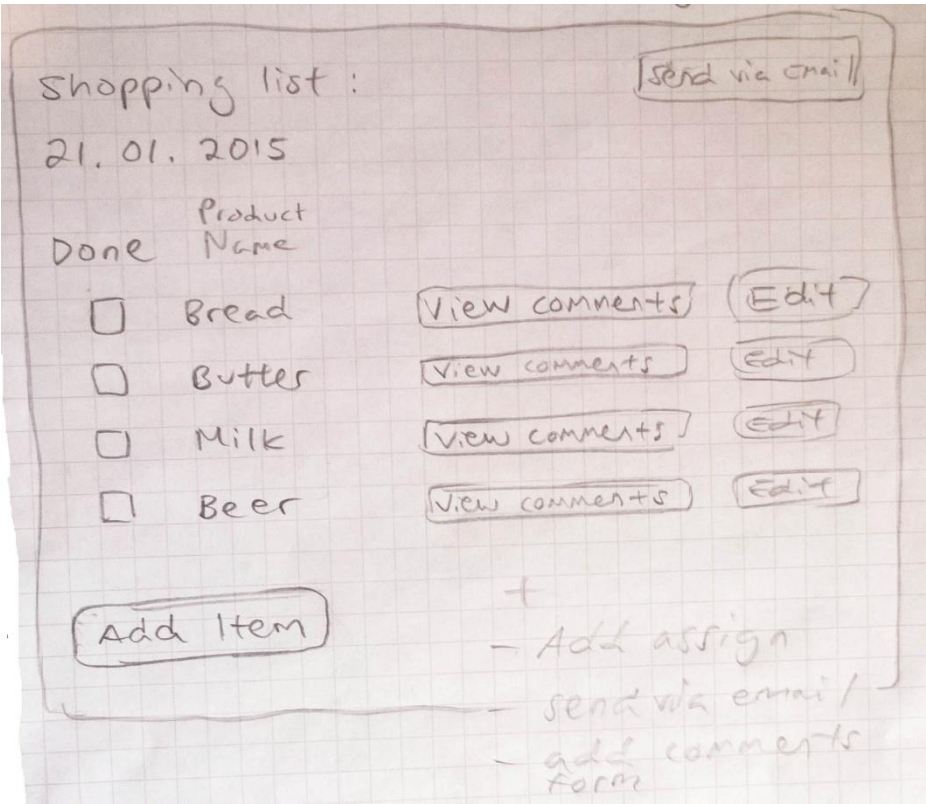 Shopping list :
Send via Email
21. 01. 2015
Product
Done Name
Bread View comments Edit
Butter View comments Edit
Milk View comments Edit
Beer View comments Edit
Add Item
+
- Add assign
- send via email
- add comments
form